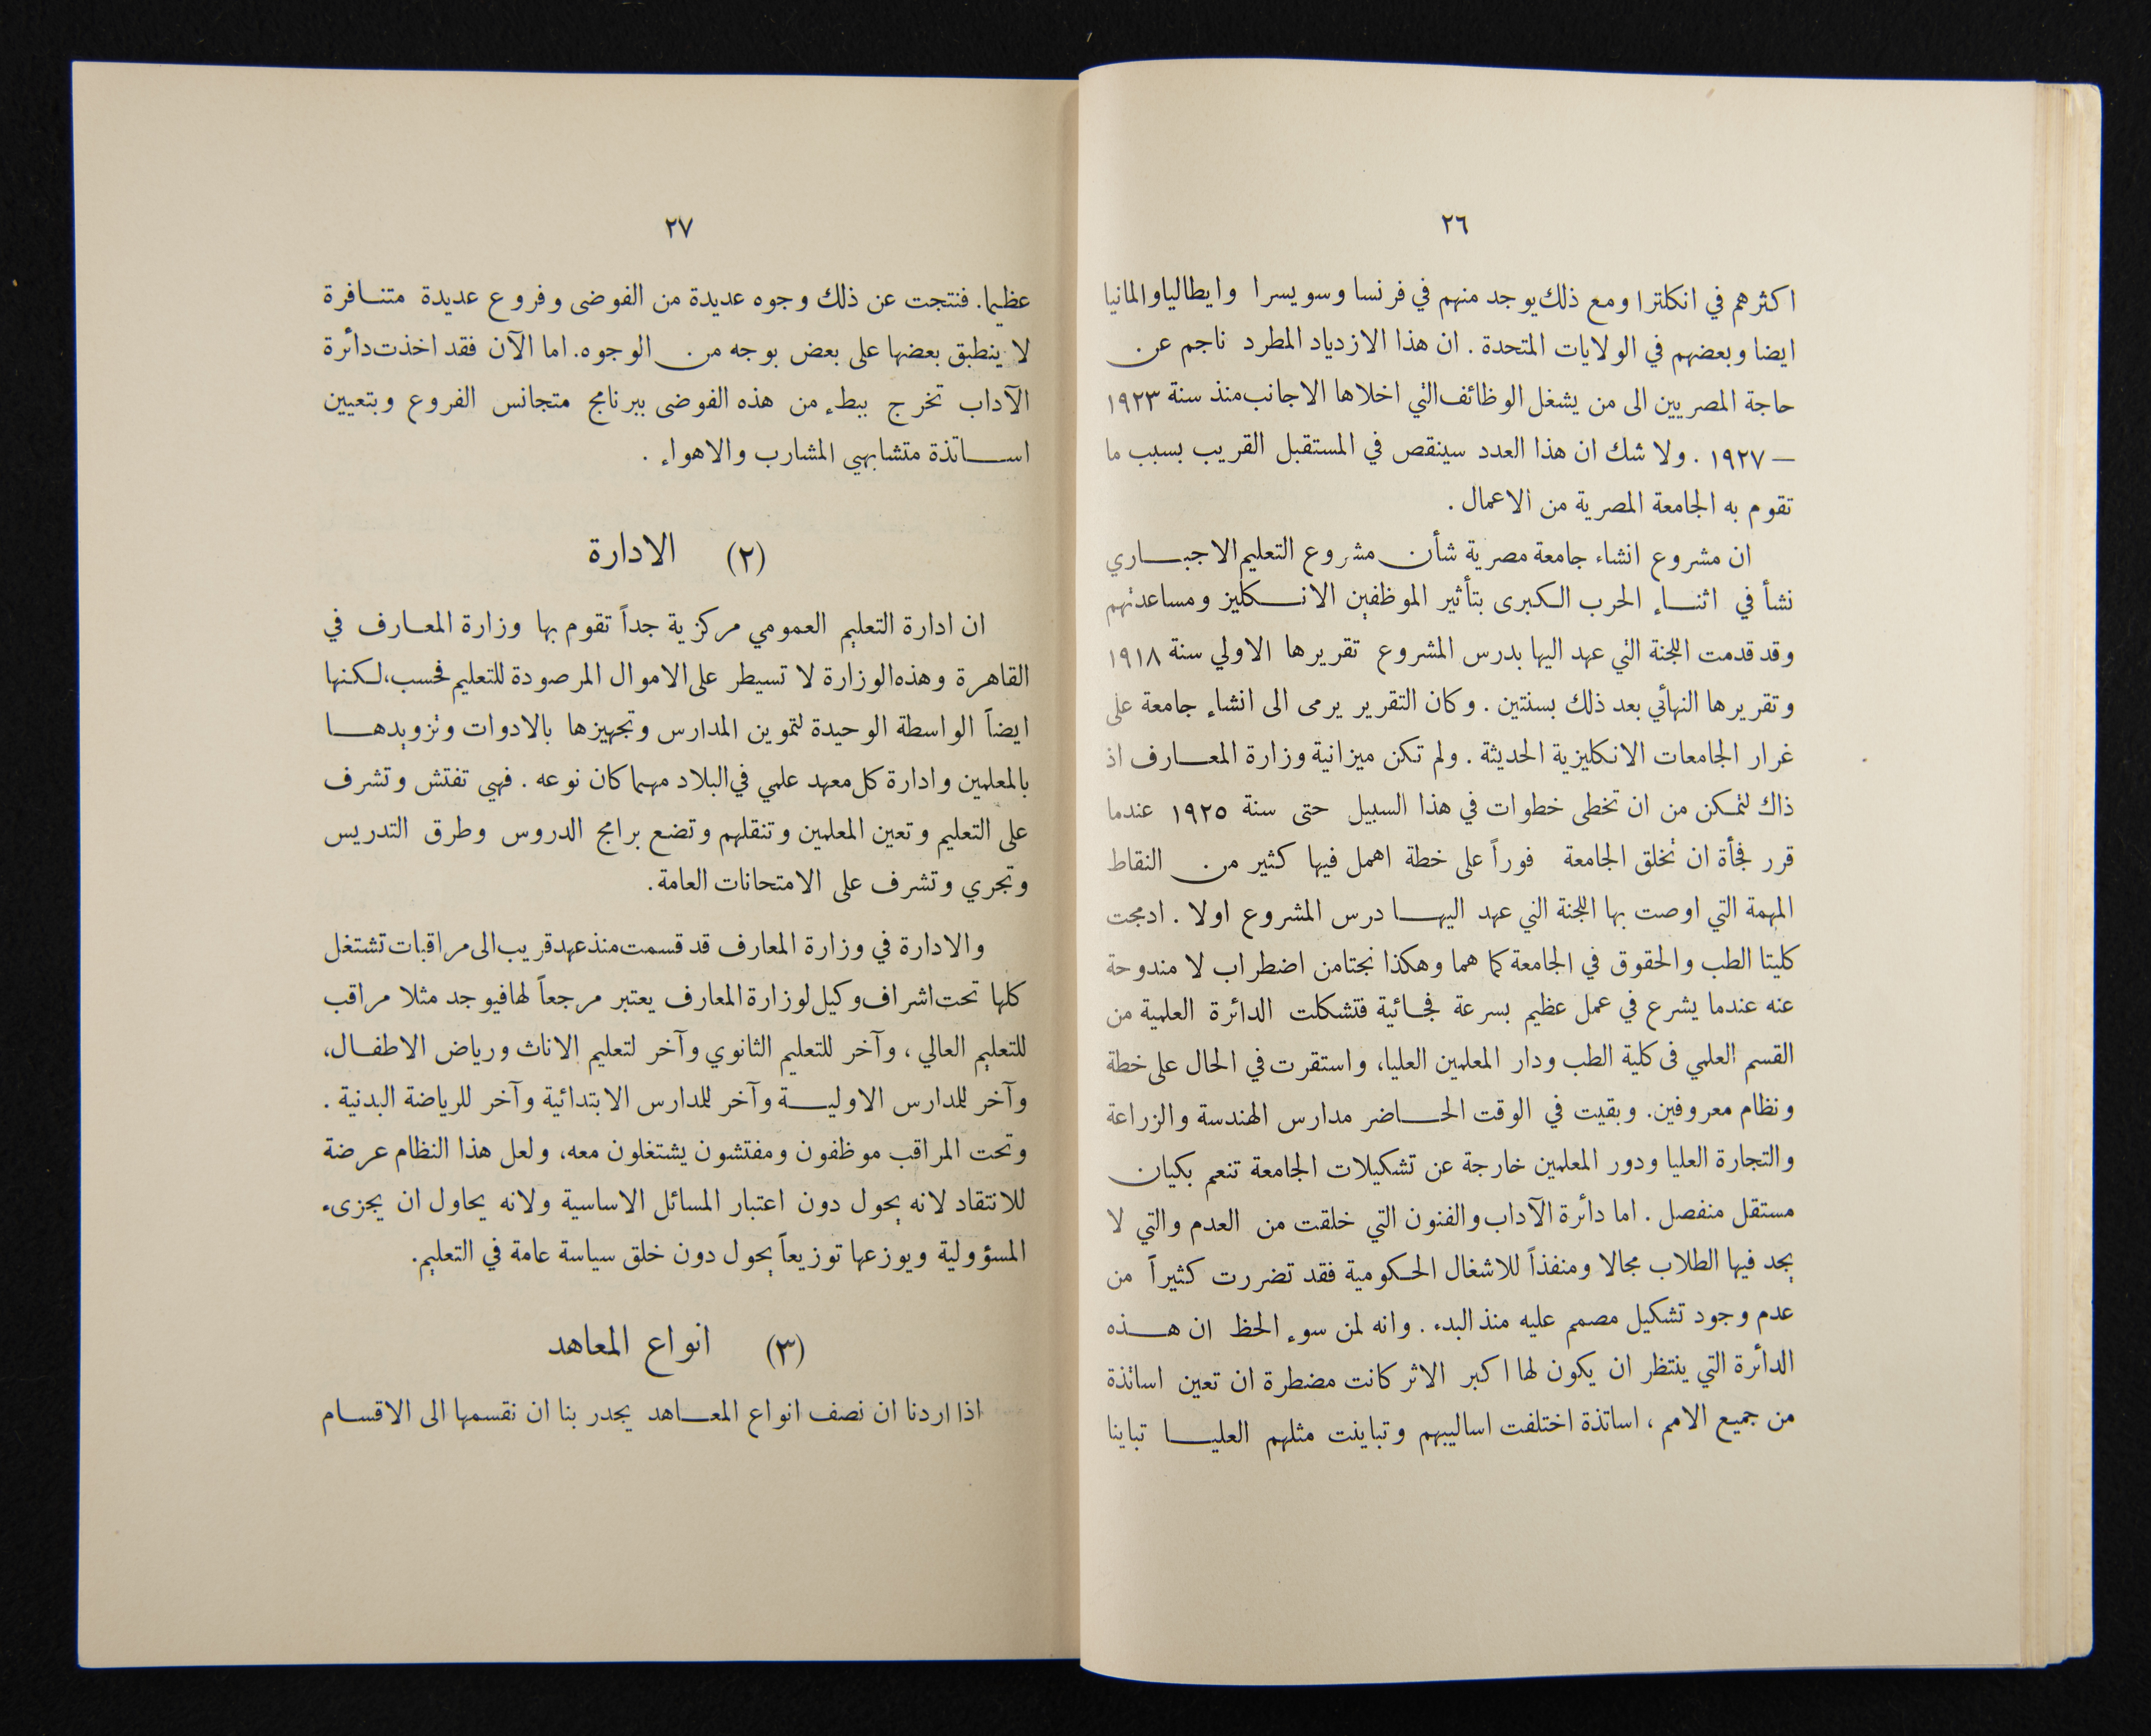 ٢٦
اكثرهم في انكلترا ومع ذلك يوجد منهم في فرنسا وسويسرا وايطاليا والمانيا
ايضا وبعضهم في الولايات المتحدة . ان هذا الازدياد المطرد ناجم عن
حاجة المصريين الى من يشغل الوظائف التي اخلاها الاجانب منذ سنة ١٩٢٣
— ١٩٢٧ . ولا شك ان هذا العدد سينقص في المستقبل القريب بسبب ما
تقوم به الجامعة المصرية من الاعمال .
ان مشروع انشاء جامعة مصرية شأن مشروع التعليم الاجبـاري
نشأ في اثنـاء الحرب الكبرى بتأثير الموظفين الانـكليز ومساعدتهم
وقد قدمت اللجنة التي عهد اليها بدرس المشروع تقريرها الاولي سنة ١٩١٨
وتقريرها النهائي بعد ذلك بسنتين . وكان التقرير يرمى الى انشاء جامعة على
غرار الجامعات الانكليزية الحديثة . ولم تكن ميزانية وزارة المعـارف اذ
ذاك لتمكن من ان تخطى خطوات في هذا السبيل حتى سنة ١٩٢٥ عندما
قرر فجأة ان تخلق الجامعة فوراً على خطة اهمل فيها كثير من النقاط
المهمة التي اوصت بها اللجنة التي عهد اليهـا درس المشروع اولا . ادمجت
كليتا الطب والحقوق في الجامعة كما هما وهكذا نجتا من اضطراب لا مندوحة
عنه عندما يشرع في عمل عظيم بسرعة فجائية فتشكلت الدائرة العلمية من
القسم العلمي فى كلية الطب ودار المعلمين العليا، واستقرت في الحال على خطة
ونظام معروفين. وبقيت في الوقت الحـاضر مدارس الهندسة والزراعة
والتجارة العليا ودور المعلمين خارجة عن تشكيلات الجامعة تنعم بكيان
مستقل منفصل . اما دائرة الآداب والفنون التي خلقت من العدم والتي لا
يجد فيها الطلاب مجالا ومنفذاً للاشغال الحكومية فقد تضررت كثيراً من
عدم وجود تشكيل مصمم عليه منذ البدء . وانه لمن سوء الحظ ان هـذه
الدائرة التي ينتظر ان يكون لها اكبر الاثر كانت مضطرة ان تعين اساتذة
من جميع الامم ، اساتذة اختلفت اساليبهم وتباينت مثلهم العليـا تباينا
٢٧
عظيما. فنتجت عن ذلك وجوه عديدة من الفوضى وفروع عديدة متنـافرة
لا ينطبق بعضها على بعض بوجه من الوجوه. اما الآن فقد اخذت دائرة
الآداب تخرج ببطء من هذه الفوضى ببرنامج متجانس الفروع وبتعيين
اسـاتذة متشابهي المشارب والاهواء .
(٢) الادارة
ان ادارة التعليم العمومي مركزية جداً تقوم بها وزارة المعـارف في
القاهرة وهذه الوزارة لا تسيطر على الاموال المرصودة للتعليم فحسب، لكنها
ايضاً الواسطة الوحيدة لتموين المدارس وتجهيزها بالادوات وتزويدهـا
بالمعلمين وادارة كل معهد علمي في البلاد مهما كان نوعه . فهي تفتش وتشرف
على التعليم وتعين المعلمين وتنقلهم وتضع برامج الدروس وطرق التدريس
وتجري وتشرف على الامتحانات العامة.
والادارة في وزارة المعارف قد قسمت منذ عهد قريب الى مراقبات تشتغل
كلها تحت اشراف وكيل لوزارة المعارف يعتبر مرجعاً لها فيوجد مثلا مراقب
للتعليم العالي ، وآخر للتعليم الثانوي وآخر لتعليم الاناث ورياض الاطفـال،
وآخر للمدارس الاوليـة وآخر للمدارس الابتدائية وآخر للرياضة البدنية .
وتحت المراقب موظفون ومفتشون يشتغلون معه، ولعل هذا النظام عرضة
للانتقاد لانه يحول دون اعتبار المسائل الاساسية ولانه يحاول ان يجزىء
المسؤولية ويوزعها توزيعاً يحول دون خلق سياسة عامة في التعليم.
(٣) انواع المعاهد
اذا اردنا ان نصف انواع المعـاهد يجدر بنا ان نقسمها الى الاقسـام